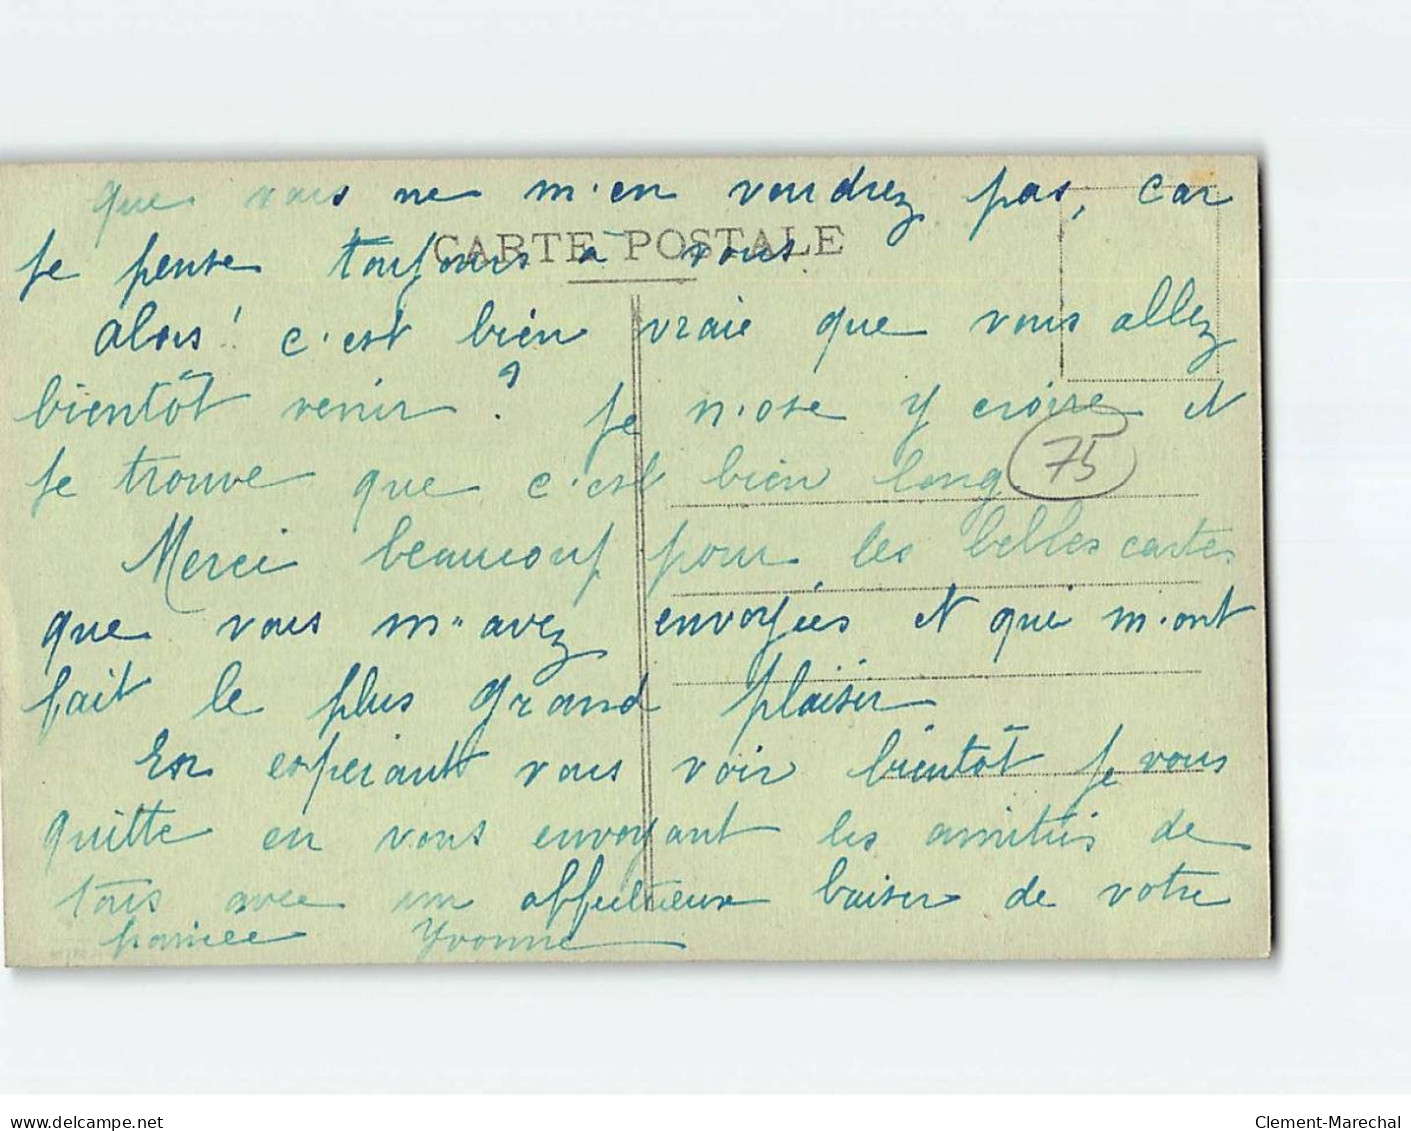 que vous ne m'en voudrez pas, car
CARTE POSTALE
je pense toujours à vous.
Alors! c'est bien vraie que vous allez
bientôt venir? Je n'ose y croire et
je trouve que c'est bien long.
75
Merci beaucoup pour les belles cartes
que vous m'avez envoyées et qui m'ont
fait le plus grand plaisir
En esperant vous voir bientôt je vous
quitte en vous envoyant les amitiés de
tous avec un affectueux baiser de votre
fiancée Yvonne
delcampe.net
Clement-Marechal